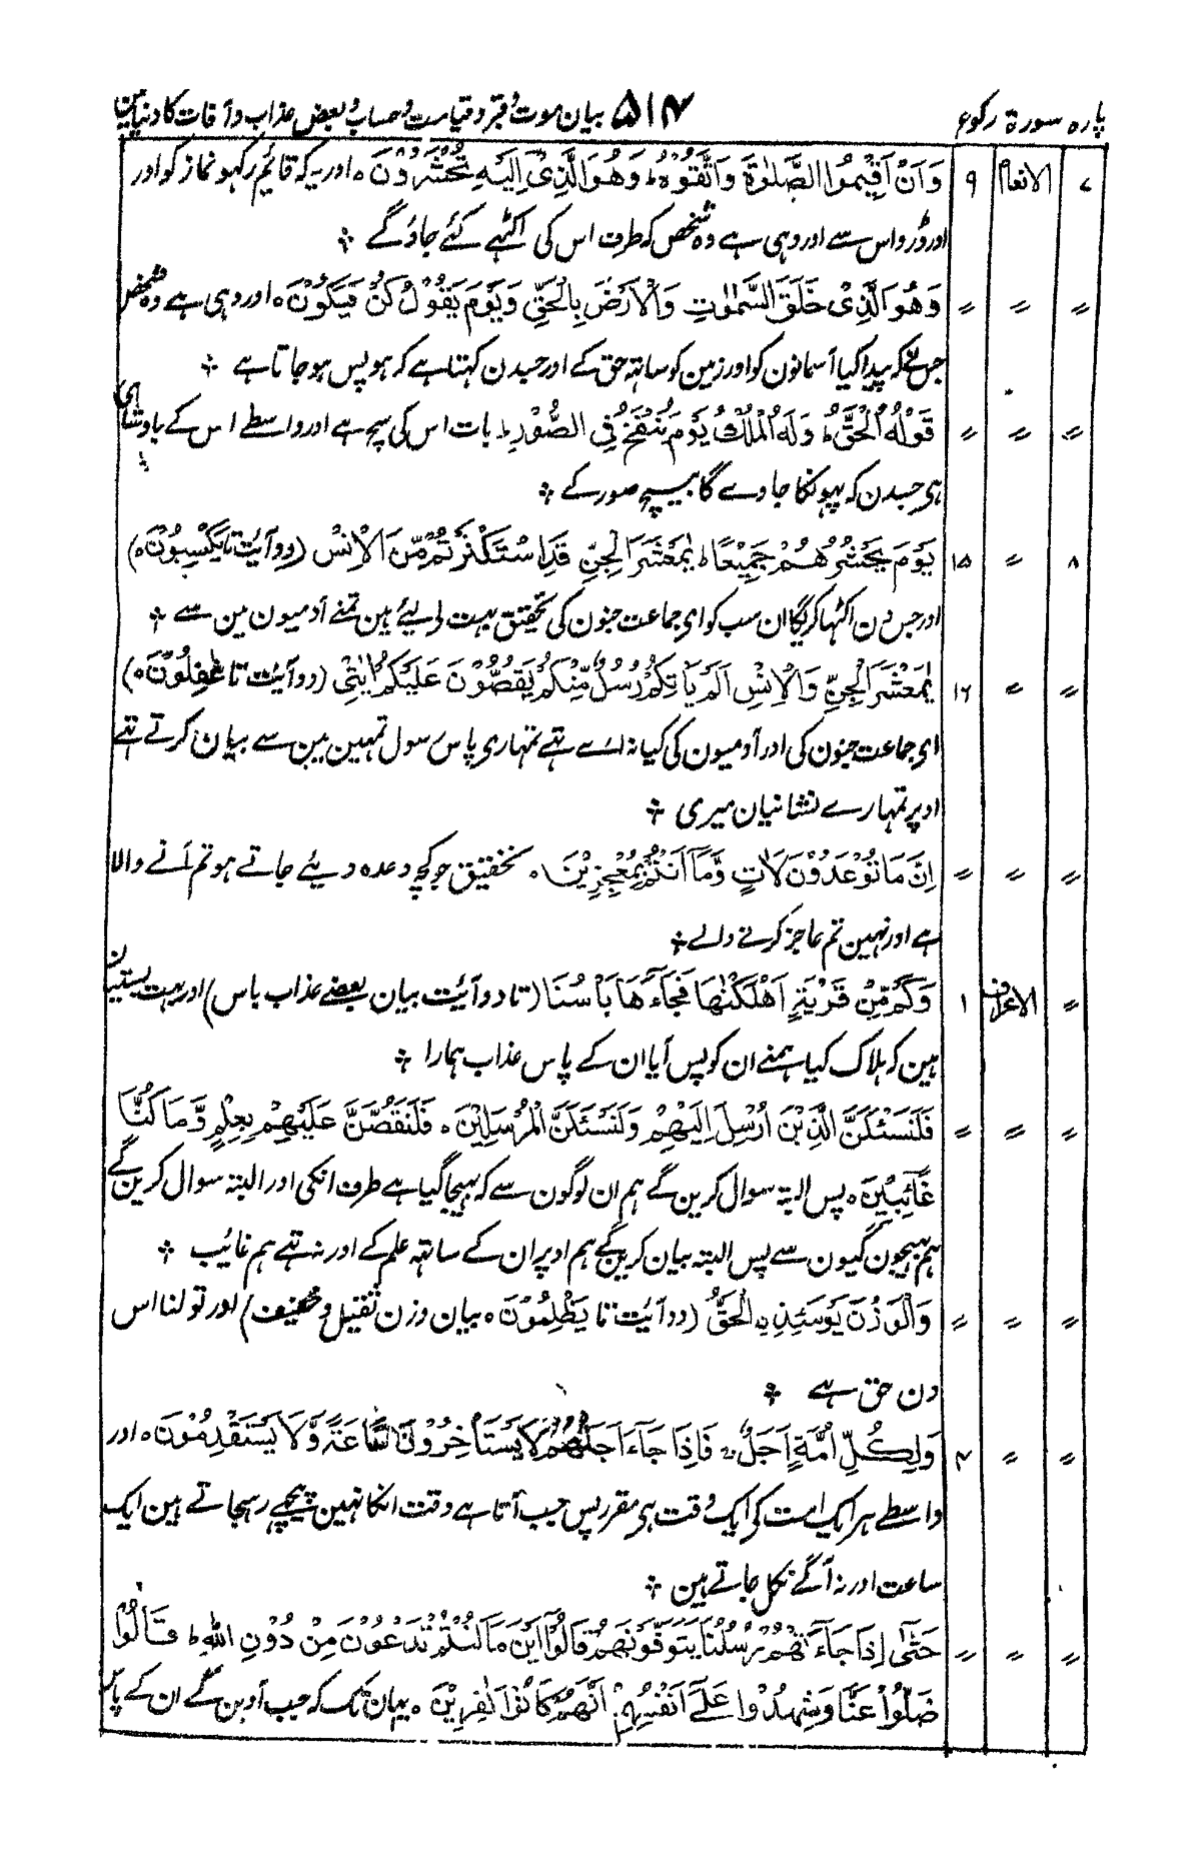 پارہ سورۃ رکوع ۵۱۴ بیان موت و قبر و قیامت و حساب و بعض عذاب و آفات کا دنیا مین
۷ الانعام ۹ وَاَنْ اَقِیْمُوا الصَّلٰوۃَ وَاتَّقُوْہُ ط وَھُوَ الَّذِیْ اِلَیْہِ تُحْشَرُوْنَ ہ اور یہ کہ قائیم رکہو نماز کو اور
اور ڈرو اس سے اور وہی ہے وہ شخص کہ طرف اس کی اکٹہے کئے جاؤ گے ÷
〃 〃 〃 وَھُوَ الَّذِیْ خَلَقَ السَّمٰوٰتِ وَالْاَرْضَ بِالْحَقِّ وَیَوْمَ یَقُوْلُ کُنْ فَیَکُوْنُ ہ اور وہی ہے وہ شخص
جس نے کہ پیدا کیا آسمانون کو اور زمین کو ساتہہ حق کے اور جسدن کہتا ہے کہ ہو پس ہو جاتا ہے ÷
〃 〃 〃 قَوْلُہُ الْحَقُّ ط وَلَہُ الْمُلْکُ یَوْمَ یُنْفَخُ فِی الصُّوْرِ ط بات اس کی سچ ہے اور واسطے اس کے بادشاہی
ہی جسدن کہ پہونکا جاوے گا بیچ صور کے ÷
۸ 〃 ۱۵ یَوْمَ یَحْشُرُھُمْ جَمِیْعًا ط یٰمَعْشَرَ الْجِنِّ قَدِ اسْتَکْثَرْتُمْ مِّنَ الْاِنْسِ (دو آیئت تا یَکْسِبُوْنَ ہ)
اور جس دن اکٹہا کریگا ان سب کو ای جماعت جنون کی تحقیق بہت لے لیئے ہین تمنے آدمیون مین سے ÷
〃 〃 ۱۶ یٰمَعْشَرَ الْجِنِّ وَالْاِنْسِ اَلَمْ یَاْتِکُمْ رُسُلٌ مِّنْکُمْ یَقُصُّوْنَ عَلَیْکُمْ اٰیٰتِیْ (دو آیئت تا غٰفِلُوْنَ ہ)
ای جماعت جنون کی اور آدمیون کی کیا نہ آئے تہے تمہاری پاس رسول تمہین مین سے بیان کرتے تہے
اوپر تمہارے نشانیان میری ÷
〃 〃 〃 اِنَّ مَا تُوْعَدُوْنَ لَاٰتٍ وَّمَا اَنْتُمْ بِمُعْجِزِیْنَ ہ تحقیق جو کچہ وعدہ دیئے جاتے ہو تم آنے والا
ہے اور نہین تم عاجز کرنے والے ÷
〃 الاعراف ۱ وَکَمْ مِّنْ قَرْیَۃٍ اَھْلَکْنٰھَا فَجَآءَھَا بَاْسُنَا (تا دو آیئت بیان بعضے عذاب باس) اور بہت بستیان
ہین کہ ہلاک کیا ہمنے ان کو پس آیا ان کے پاس عذاب ہمارا ÷
〃 〃 〃 فَلَنَسْئَلَنَّ الَّذِیْنَ اُرْسِلَ اِلَیْھِمْ وَلَنَسْئَلَنَّ الْمُرْسَلِیْنَ ہ فَلَنَقُصَّنَّ عَلَیْھِمْ بِعِلْمٍ وَّمَا کُنَّا
غَآئِبِیْنَ ہ پس البتہ سوال کرین گے ہم ان لوگون سے کہ بہیجا گیا ہے طرف انکی اور البتہ سوال کرین گے
ہم بہیجون گیون سے پس البتہ بیان کرین گے ہم اوپر ان کے ساتہہ علم کے اور نہ تہے ہم غائیب ÷
〃 〃 〃 وَالْوَزْنُ یَوْمَئِذِ نِ الْحَقُّ (دو آیئت تا یَظْلِمُوْنَ ہ بیان وزن ثقیل و خفیف) اور تولنا اس
دن حق ہے ÷
〃 〃 ۴ وَلِکُلِّ اُمَّۃٍ اَجَلٌ ج فَاِذَا جَآءَ اَجَلُھُمْ لَا یَسْتَاْخِرُوْنَ سَاعَۃً وَّلَا یَسْتَقْدِمُوْنَ ہ اور
واسطے ہر ایک امت کی ایک وقت ہی مقرر پس جب آتا ہے وقت انکا نہین پیچہے رہجاتے ہین ایک
ساعت اور نہ آگے نکل جاتے ہین ÷
〃 〃 〃 حَتّٰی اِذَا جَآءَتْھُمْ رُسُلُنَا یَتَوَفَّوْنَھُمْ قَالُوْا اَیْنَ مَا کُنْتُمْ تَدْعُوْنَ مِنْ دُوْنِ اللہِ ط قَالُوْا
ضَلُّوْا عَنَّا وَشَھِدُوْا عَلٰی اَنْفُسِھِمْ اَنَّھُمْ کَانُوْا کٰفِرِیْنَ ہ یہان تک کہ جب آوین گے ان کے پاس